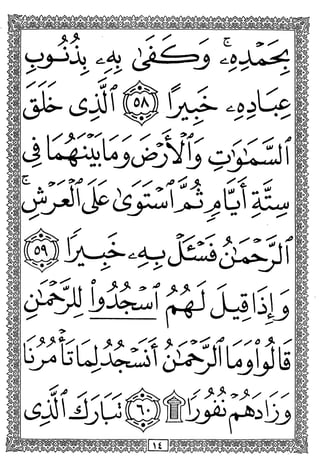 بِحَمْدِهِۦۚ وَكَفَىٰ بِهِۦ بِذُنُوبِ
عِبَادِهِۦ خَبِيرًا ٥٨ الَّذِى خَلَقَ
السَّمَٰوَٰتِ وَالْأَرْضَ وَمَا بَيْنَهُمَا فِى
سِتَّةِ أَيَّامٍ ثُمَّ اسْتَوَىٰ عَلَى الْعَرْشِۚ
الرَّحْمَٰنُ فَسْـَٔلْ بِهِۦ خَبِيرًا ٥٩
وَإِذَا قِيلَ لَهُمُ اسْجُدُوا۟ لِلرَّحْمَٰنِ
قَالُوا۟ وَمَا الرَّحْمَٰنُ أَنَسْجُدُ لِمَا تَأْمُرُنَا
وَزَادَهُمْ نُفُورًا ۩ ٦٠ تَبَارَكَ الَّذِى
١٤